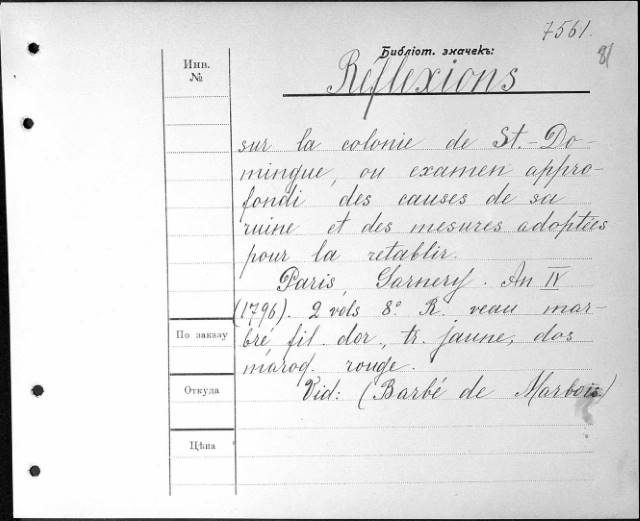 7561.
81
Библіот. значекъ:
Инв. №
Réflexions
sur la colonie de St.-Do-
mingue, ou examen appro-
fondi des causes de sa
ruine et des mesures adoptées
pour la rétablir.
Paris, Garnery. An IV
(1796). 2 vols 8º R. veau mar-
bré fil. dor., tr. jaune, dos
maroq. rouge.
Vid: (Barbé de Marbois)
По заказу
Откуда
Цѣна